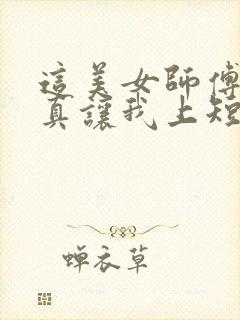 這美女師傅
真讓我上短
蝉衣草